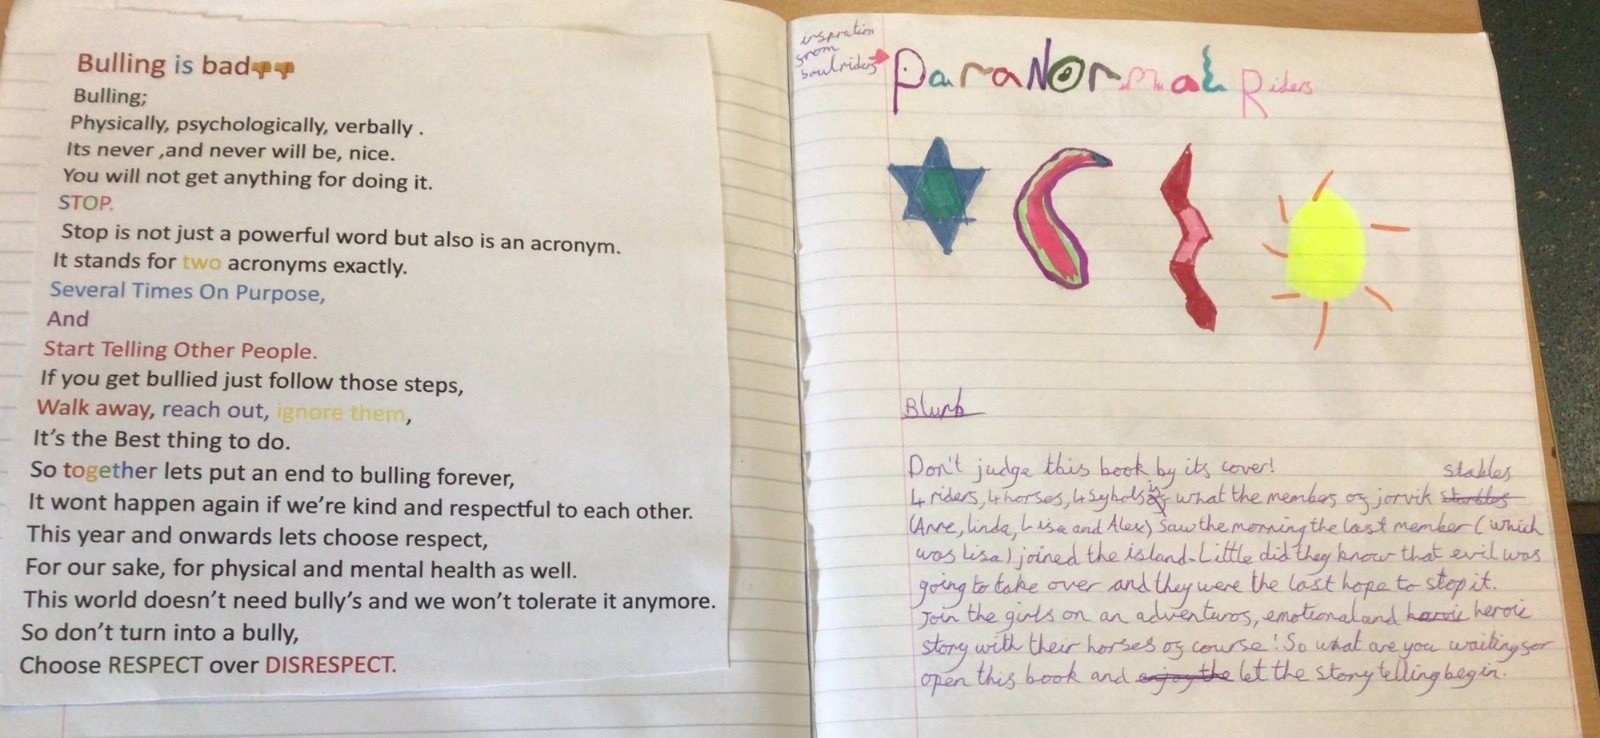 Bulling is bad👎👎
Bulling;
Physically, psychologically, verbally .
Its never ,and never will be, nice.
You will not get anything for doing it.
STOP.
Stop is not just a powerful word but also is an acronym.
It stands for two acronyms exactly.
Several Times On Purpose,
And
Start Telling Other People.
If you get bullied just follow those steps,
Walk away, reach out, ignore them,
It's the Best thing to do.
So together lets put an end to bulling forever,
It wont happen again if we're kind and respectful to each other.
This year and onwards lets choose respect,
For our sake, for physical and mental health as well.
This world doesn't need bully's and we won't tolerate it anymore.
So don't turn into a bully,
Choose RESPECT over DISRESPECT.
inspration
from
soulriders
ParaNormal Riders
Blurb
Don't judge this book by its cover!
stables
4 riders, 4 horses, 4 sybols is what the membes of jorvik
(Anne, linda, Lisa and Alex) Saw the morning the last member (which
was Lisa) joined the island-Little did they know that evil was
going to take over and they were the last hope to stop it.
Join the girls on an adventuros, emotional and heroic
story with their horses of course! So what are you waiting for
open this book and enjoy the let the story telling begin.